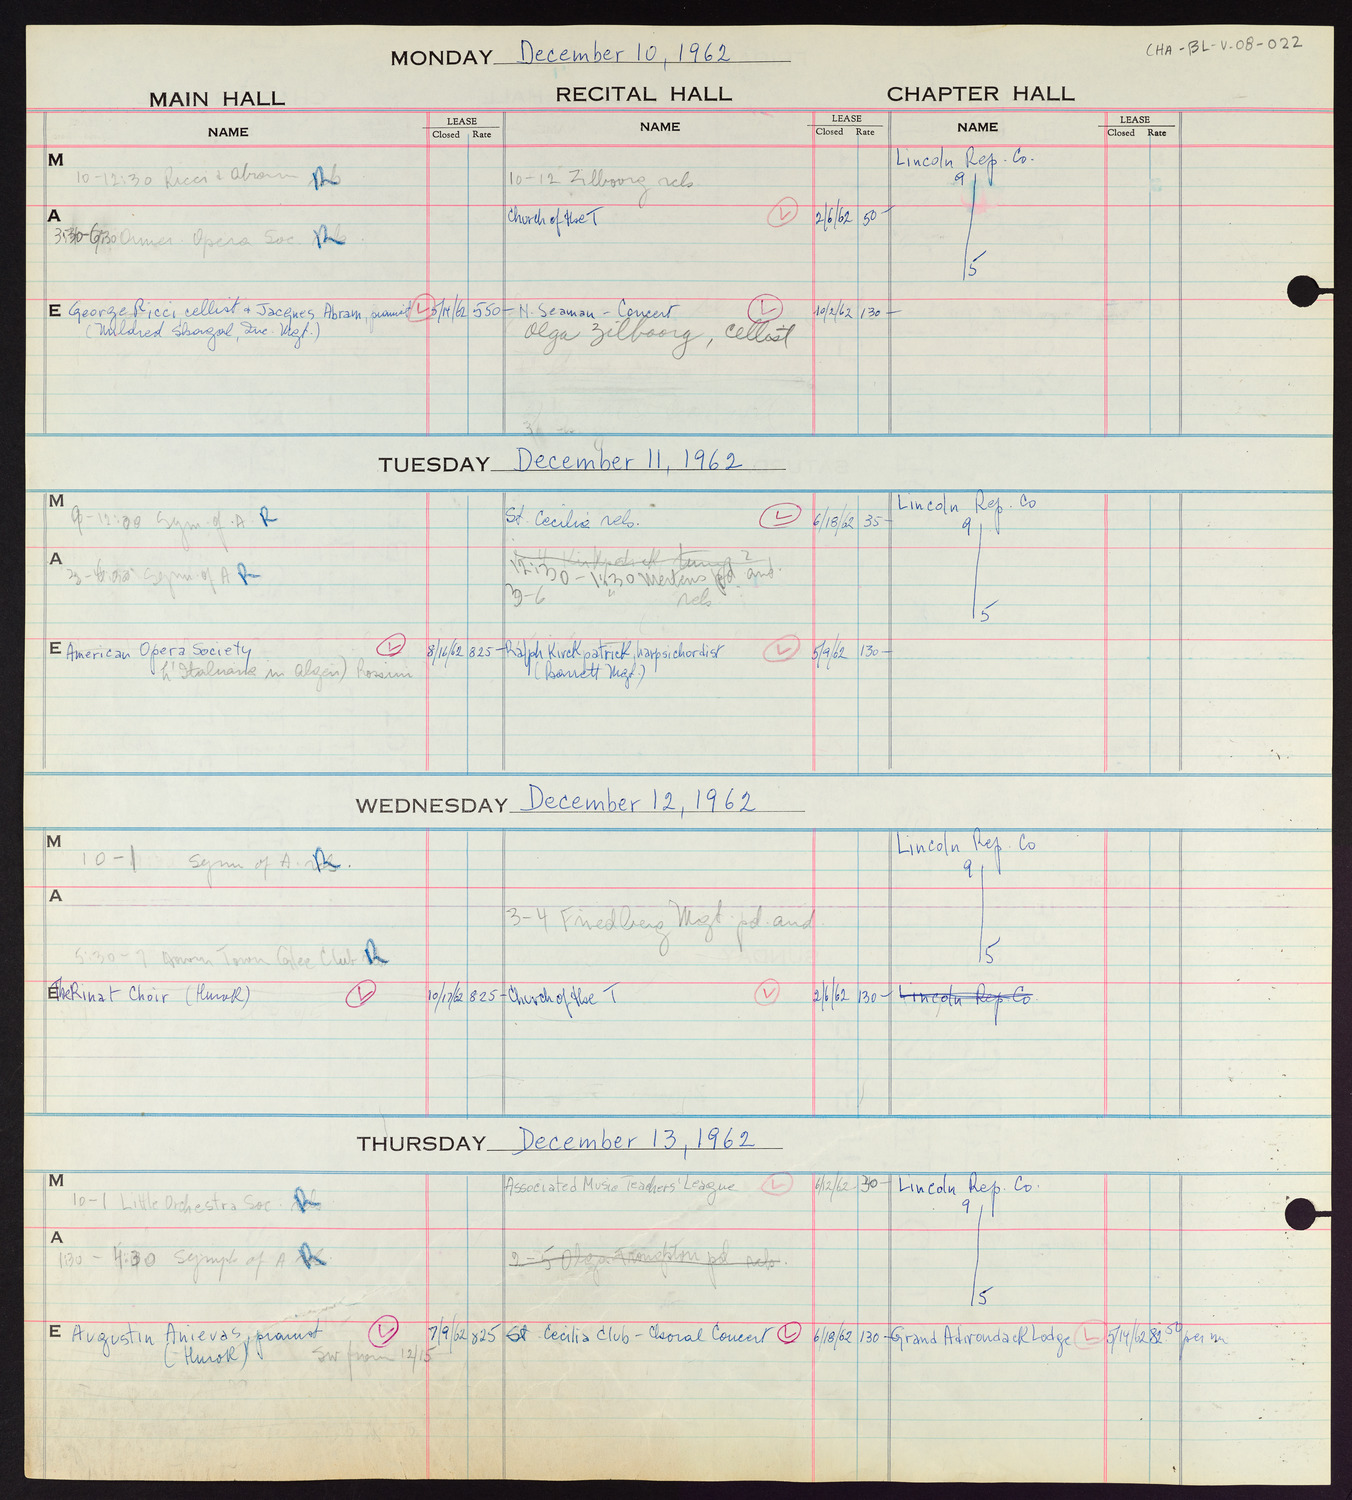 CHA-BL-V-08-022
MONDAY December 10, 1962
MAIN HALL RECITAL HALL CHAPTER HALL
NAME LEASE Closed Rate NAME LEASE Closed Rate NAME LEASE Closed Rate
M
10-12:30 Ricci & Abram R
10-12 Zilboorg rehs.
Lincoln Rep. Co.
9
5
A
3:30-6:30 Amer. Opera Soc. R
Church of the T L 2/6/62 50-
E George Ricci cellist & Jacques Abram, pianist L 5/14/62 550-
(Mildred Shagal, Inc. Mgt.)
N. Seaman - Concert L 10/2/62 130-
Olga Zilboorg, cellist
TUESDAY December 11, 1962
M
Sym. of A R
St. Cecilia rehs. L 6/18/62 35-
Lincoln Rep. Co
9
5
A
Sym. of A R
Kirkpatrick
12:30 - 1:30 Mertens pd aud.
3-6 rehs
E American Opera Society L 8/16/62 825-
L'Italiana in Algeri) Rossini
Ralph Kirckpatrick, harpsichordist L 5/9/62 130-
(Barrett Mgt.)
WEDNESDAY December 12, 1962
M
10-1 Sym of A. R.
Lincoln Rep. Co
9
5
A
3-4 Friedberg Mgt pd. aud
5:30-7 Town Glee Club R
E The Rinat Choir (Hurok) L 10/17/62 825-
Church of the T L 2/6/62 130-
Lincoln Rep Co.
THURSDAY December 13, 1962
M
10-1 Little Orchestra Soc. R
Associated Music Teachers' League L 6/12/62 30-
Lincoln Rep. Co.
9
5
A
130 - 4:30 Symph of A R
2-5 Olga Troughton pd rehs.
E Augustin Anievas, pianist L 7/9/62 825
(Hurok)
Sw from 12/15
St. Cecilia Club - Choral Concert L 6/18/62 130-
Grand Adirondack Lodge L 5/14/62 82 50 per